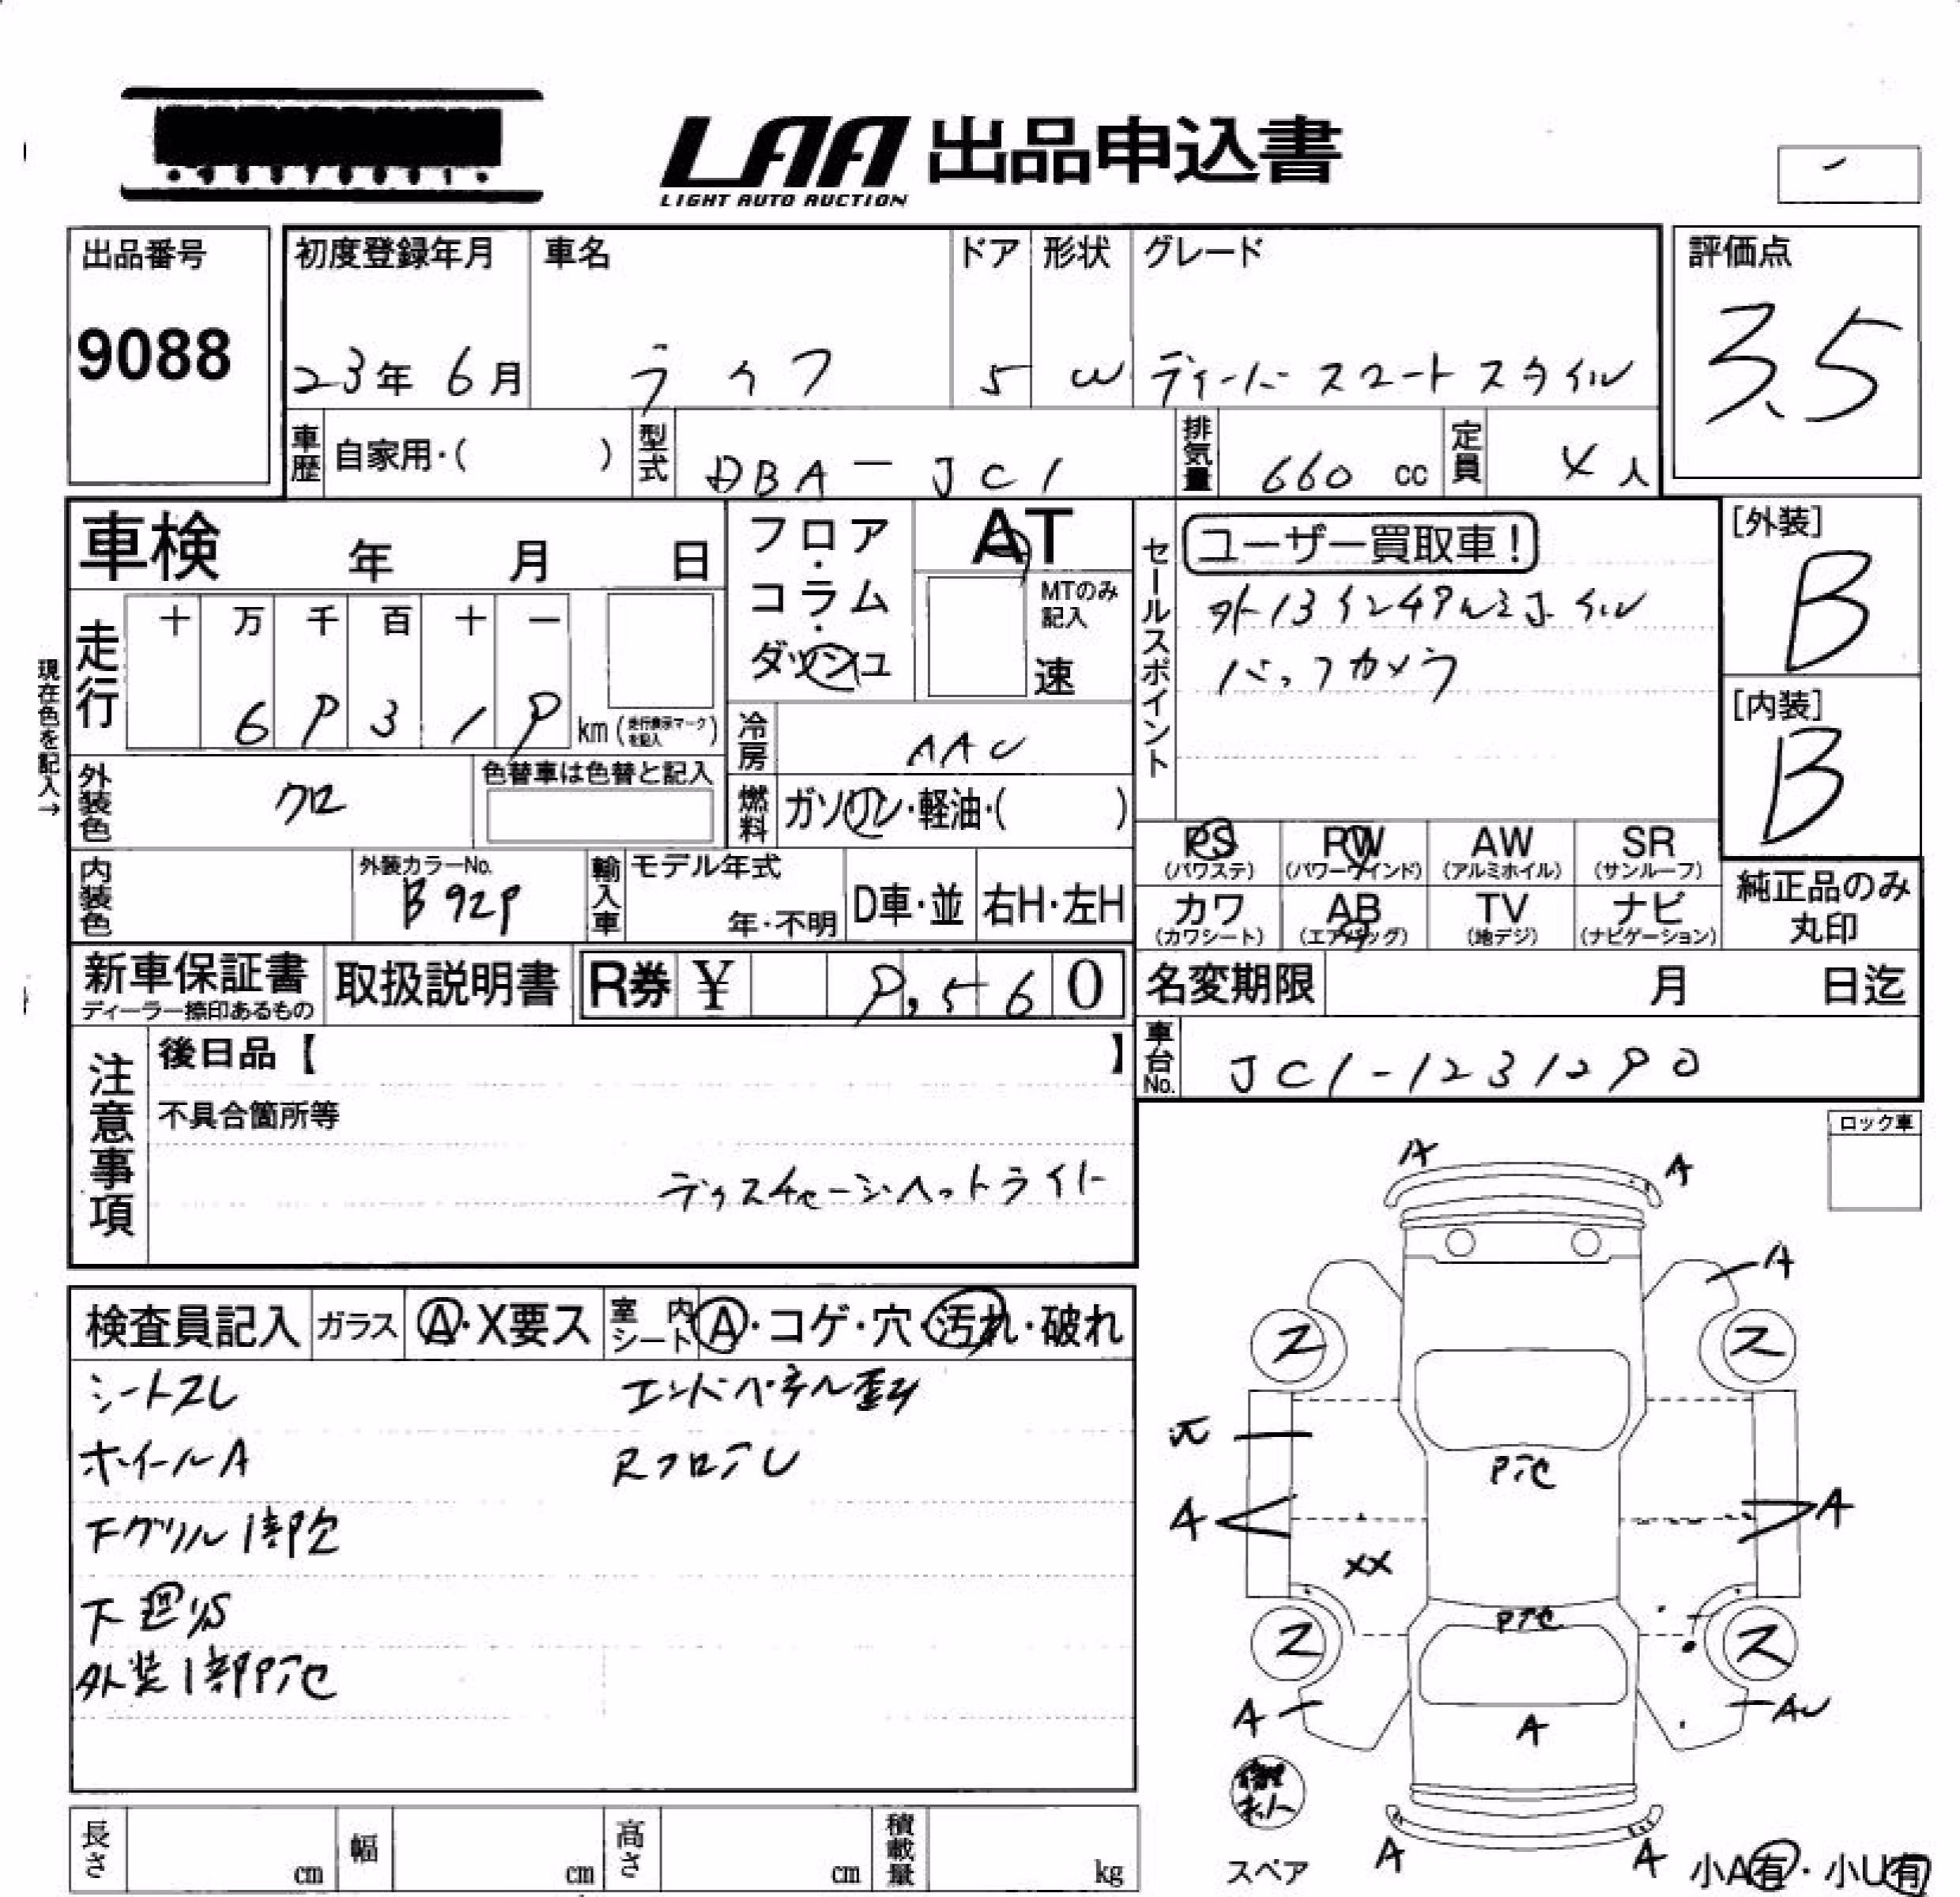 LAA 出品申込書
LIGHT AUTO AUCTION
出品番号
9088
初度登録年月
23年 6月
車名
ライフ
ドア
5
形状
W
グレード
ディーバ スマートスタイル
評価点
3.5
車歴
自家用・( )
型式
DBA-JC1
排気量
660 cc
定員
4人
車検 年 月 日
走行
十 万 千 百 十 一
6 9 3 1 9 km (走行表示マークを記入)
現在色を記入→
外装色
クロ
色替車は色替と記入
内装色
外装カラーNo.
B92P
フロア・コラム・ダッシュ
AT
MTのみ記入
速
冷房
AAC
燃料
ガソリン・軽油・( )
輸入車
モデル年式
年・不明
D車・並
右H・左H
セールスポイント
ユーザー買取車!
外13インチアルミホイル
バックカメラ
[外装]
B
[内装]
B
PS
(パワステ)
PW
(パワーウインド)
AW
(アルミホイル)
SR
(サンルーフ)
カワ
(カワシート)
AB
(エアバッグ)
TV
(地デジ)
ナビ
(ナビゲーション)
純正品のみ
丸印
新車保証書
ディーラー捺印あるもの
取扱説明書
R券 ¥ 9,560
名変期限 月 日迄
車台No.
JC1-1231290
注意事項
後日品【 】
不具合箇所等
ディスチャージヘットライト
ロック車
検査員記入
ガラス
A・X要ス
室内シート
A・コゲ・穴・汚れ・破れ
シートスレ
エンドパネル歪み
ホイールA
RフロアU
下グリル1部欠
下廻りS
外装1部Pアセ
A
A
A
ス
ス
A
A
Pアセ
XX
Pアセ
ス
ス
A
AU
A
修理キット
スペア
A
A
小A有・小U有
長さ cm
幅 cm
高さ cm
積載量 kg